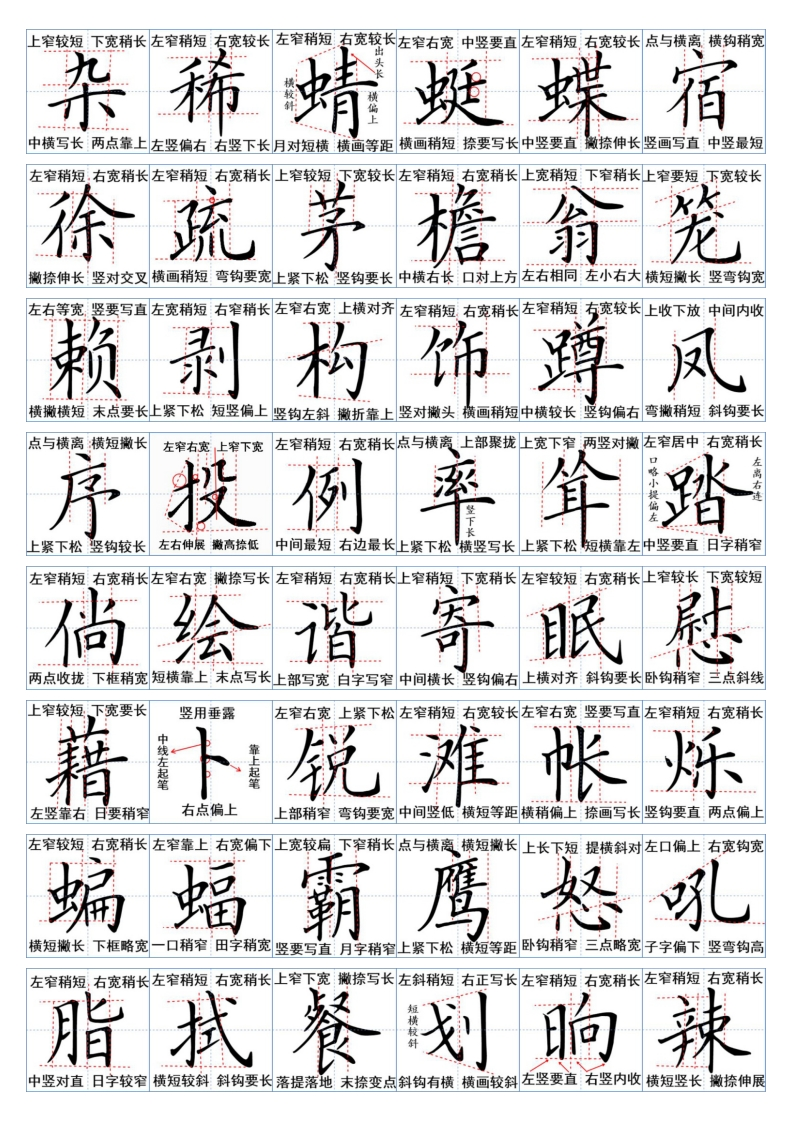 上窄较短 下宽稍长
杂
中横写长 两点靠上
左窄稍短 右宽较长
稀
左竖偏右 右竖下长
左窄稍短 右宽较长
出头长
横较斜
蜻
横偏上
月对短横 横画等距
左窄右宽 中竖要直
蜓
横画稍短 捺要写长
左窄稍短 右宽较长
蝶
中竖要直 撇捺伸长
点与横离 横钩稍宽
宿
竖画写直 中竖最短
左窄稍短 右宽稍长
徐
撇捺伸长 竖对交叉
左窄稍短 右宽稍长
疏
横画稍短 弯钩要宽
上窄较短 下宽较长
茅
上紧下松 竖钩要长
左窄稍短 右宽稍长
檐
中横右长 口对上方
上宽稍短 下窄稍长
翁
左右相同 左小右大
上窄要短 下宽较长
笼
横短撇长 竖弯钩宽
左右等宽 竖要写直
赖
横撇横短 末点要长
左宽稍短 右窄稍长
剥
上紧下松 短竖偏上
左窄右宽 上横对齐
构
竖钩左斜 撇折靠上
左窄稍短 右宽稍长
饰
竖对撇头 横画稍短
左窄稍短 右宽较长
蹲
中横较长 竖钩偏右
上收下放 中间内收
凤
弯撇稍短 斜钩要长
点与横离 横短撇长
序
上紧下松 竖钩较长
左窄右宽 上窄下宽
投
左右伸展 撇高捺低
左窄稍短 右宽稍长
例
中间最短 右边最长
点与横离 上部聚拢
率
竖下长
上紧下松 横竖写长
上宽下窄 两竖对撇
耸
上紧下松 短横靠左
左窄居中 右宽稍长
口略小提偏左
踏
左离右连
中竖要直 日字稍窄
左窄稍短 右宽稍长
倘
两点收拢 下框稍宽
左窄右宽 撇捺写长
绘
短横靠上 末点写长
左窄稍短 右宽稍长
谐
上部写宽 白字写窄
上窄稍短 下宽稍长
寄
中间横长 竖钩偏右
左窄较短 右宽稍长
眠
上横对齐 斜钩要长
上窄较长 下宽较短
慰
卧钩稍窄 三点斜线
上窄较短 下宽要长
藉
左竖靠右 日要稍窄
竖用垂露
中线左起笔
卜
靠上起笔
右点偏上
左窄右宽 上紧下松
锐
上部稍窄 弯钩要宽
左窄稍短 右宽较长
滩
中间竖低 横短等距
左窄右宽 竖要写直
帐
横稍偏上 捺画写长
左窄稍短 右宽稍长
烁
竖钩要直 两点偏上
左窄较短 右宽稍长
蝙
横短撇长 下框略宽
左窄靠上 右宽偏下
蝠
一口稍窄 田字稍宽
上宽较扁 下窄稍长
霸
竖要写直 月字稍窄
点与横离 横短撇长
鹰
上紧下松 横短等距
上长下短 提横斜对
怒
卧钩稍窄 三点略宽
左口偏上 右宽钩宽
吼
子字偏下 竖弯钩高
左窄稍短 右宽稍长
脂
中竖对直 日字较窄
左窄稍短 右宽稍长
拭
横短较斜 斜钩要长
上窄下宽 撇捺写长
餐
落提落地 末捺变点
左斜稍短 右正写长
短横较斜
划
斜钩有横 横画较斜
左窄稍短 右宽稍长
晌
左竖要直 右竖内收
左窄稍短 右宽稍长
辣
横短竖长 撇捺伸展